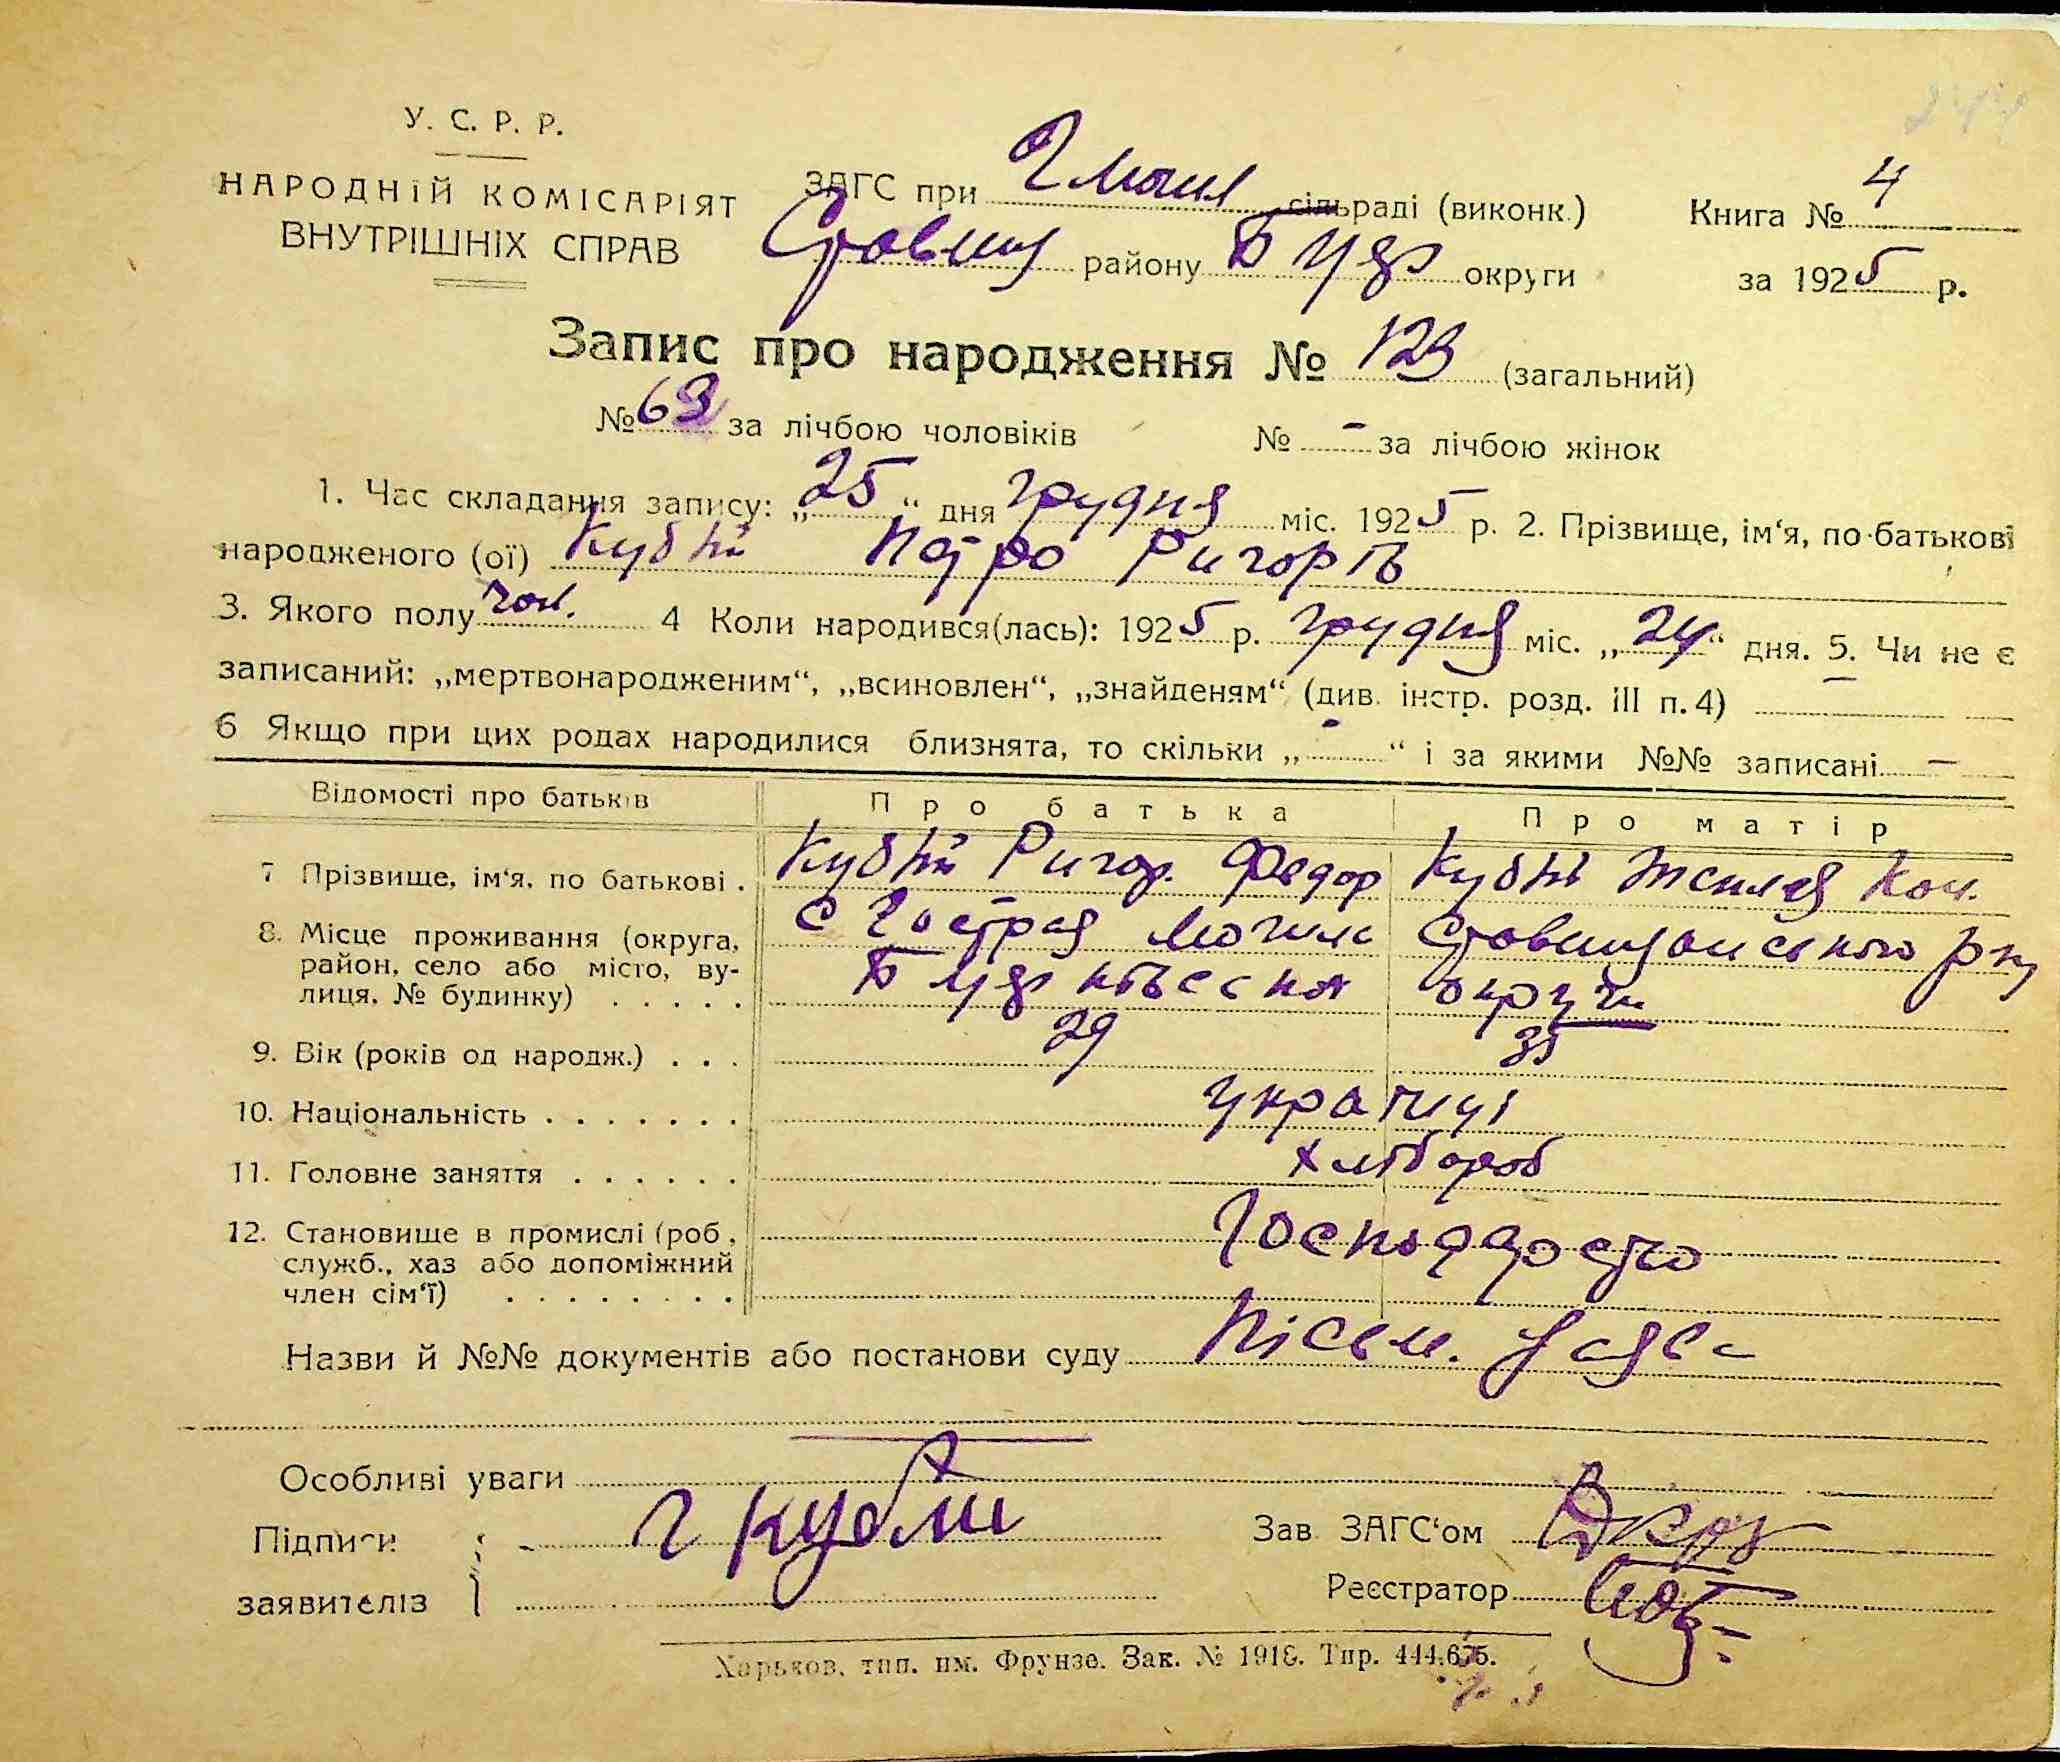 У. С. Р. Р.
НАРОДНІЙ КОМІСАРІЯТ
ВНУТРІШНІХ СПРАВ
ЗАГС при Г Могил сільраді (виконк.) Книга № 4
Ставищ району Б Церк округи за 1925 р.
Запис про народження № 129 (загальний)
№ 69 за лічбою чоловіків № - за лічбою жінок
1. Час складання запису: „25“ дня грудня міс. 1925 р. 2. Прізвище, ім‘я, по-батькові
народженого (ої) Кублій Петро Ригорів
3. Якого полу чол. 4 Коли народився(лась): 1925 р. грудня міс. „24“ дня. 5. Чи не є
записаний: „мертвонародженим“, „всиновлен“, „знайденям“ (див. інстр. розд. III п. 4) —
6 Якщо при цих родах народилися близнята, то скільки „-“ і за якими №№ записані —
Відомості про батьків Про батька Про матір
7 Прізвище, ім‘я, по батькові . Кублій Ригор. Федор Кублій
8. Місце проживання (округа, район, село або місто, вулиця, № будинку) . . . . . с Гостра Могила Ставищанського р-ну
Б Церківська округи
9. Вік (років од народж.) . . . 29 35
10. Національність . . . . . . . українці
11. Головне заняття . . . . . . хлібороб
12. Становище в промислі (роб., служб., хаз або допоміжний член сім‘ї) . . . . . . . . Господарство
Назви й №№ документів або постанови суду Пісьм. заява
Особливі уваги
Підписи Г Кублій Зав ЗАГС‘ом
заявителів Реєстратор
Харьков, тип. им. Фрунзе. Зак. № 1918. Тир. 444.675.